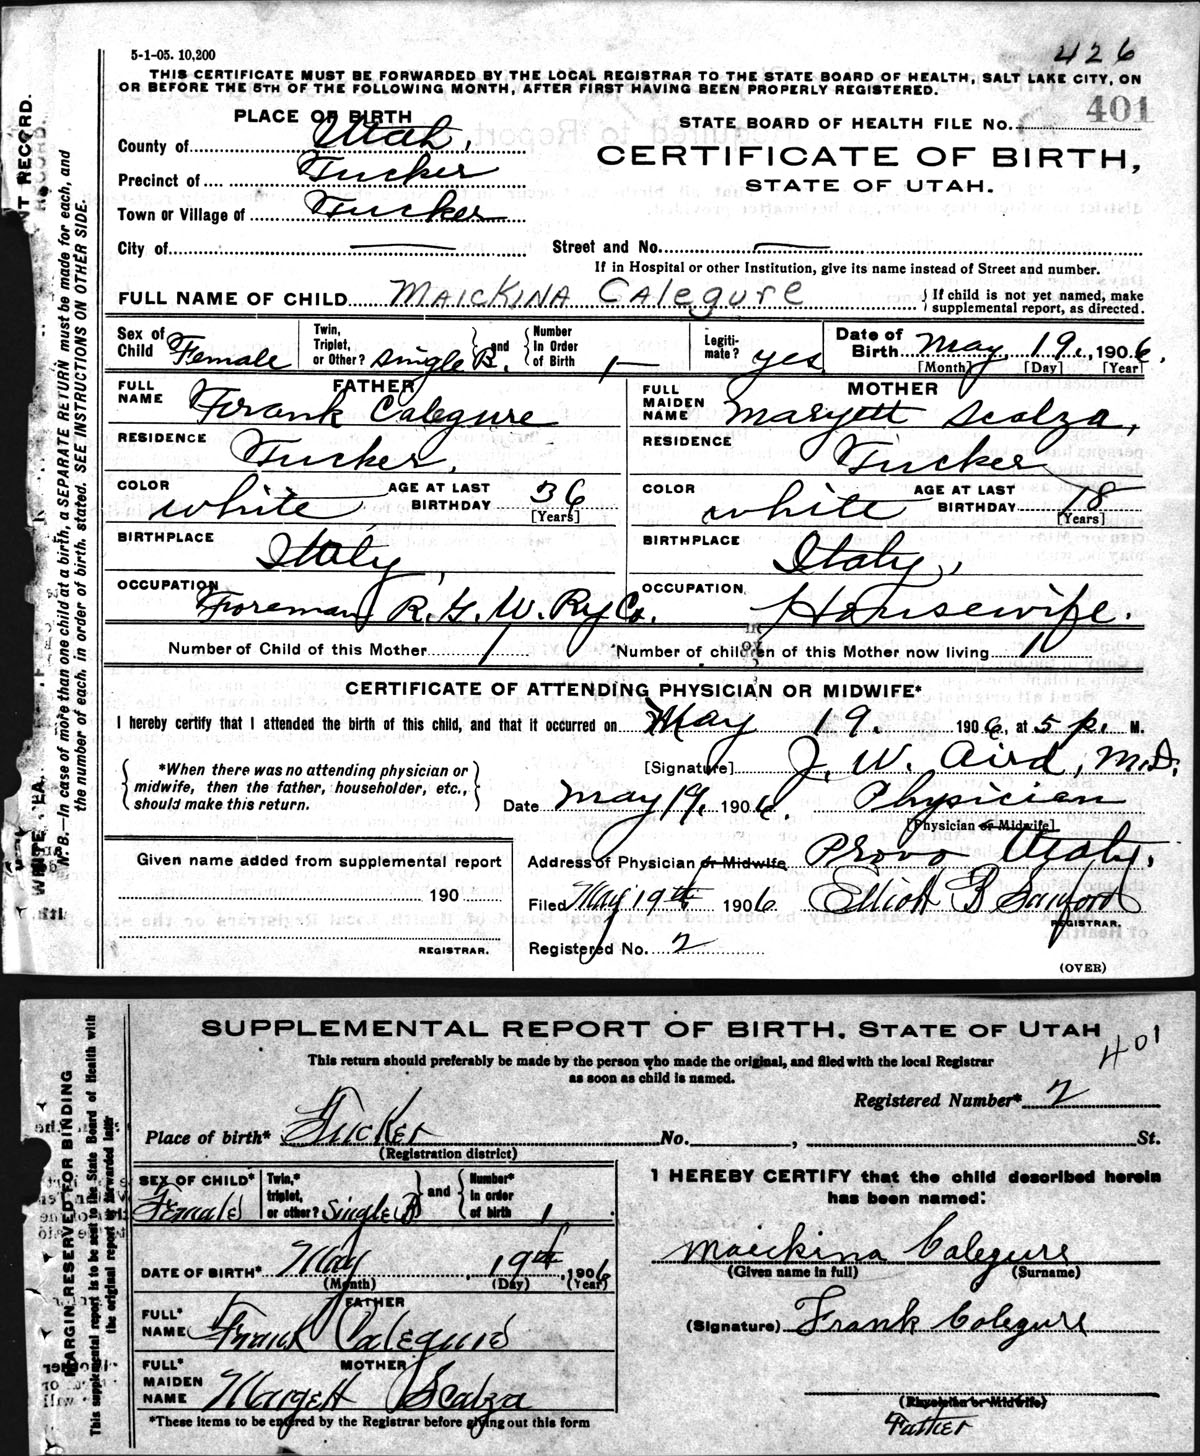 5-1-05. 10,200
426
THIS CERTIFICATE MUST BE FORWARDED BY THE LOCAL REGISTRAR TO THE STATE BOARD OF HEALTH, SALT LAKE CITY, ON
OR BEFORE THE 5TH OF THE FOLLOWING MONTH, AFTER FIRST HAVING BEEN PROPERLY REGISTERED.
401
PLACE OF BIRTH
STATE BOARD OF HEALTH FILE No.
County of Utah,
CERTIFICATE OF BIRTH,
Precinct of Tucker
STATE OF UTAH.
Town or Village of Tucker
City of
Street and No.
If in Hospital or other Institution, give its name instead of Street and number.
FULL NAME OF CHILD MAICKINA CALEGURE
{If child is not yet named, make
supplemental report, as directed.
Sex of Child Female
Twin, Triplet, or Other? single B. and Number In Order of Birth 1
Legitimate? yes
Date of Birth May 19, 1906.
[Month] [Day] [Year]
FATHER
FULL NAME Frank Calegure
MOTHER
FULL MAIDEN NAME Maryett Scalza,
RESIDENCE Tucker.
RESIDENCE Tucker
COLOR white AGE AT LAST BIRTHDAY 36
[Years]
COLOR white AGE AT LAST BIRTHDAY 18
[Years]
BIRTHPLACE Italy,
BIRTHPLACE Italy,
OCCUPATION Foreman R. G. W. Ry Co.
OCCUPATION Housewife.
Number of Child of this Mother 1
Number of children of this Mother now living 1
CERTIFICATE OF ATTENDING PHYSICIAN OR MIDWIFE*
I hereby certify that I attended the birth of this child, and that it occurred on May 19. 1906, at 5 p. M.
{*When there was no attending physician or
midwife, then the father, householder, etc.,
should make this return.}
[Signature] J. W. Aird, M.D.
Date May 19, 1906. Physician
[Physician or Midwife]
Given name added from supplemental report
190
REGISTRAR.
Address of Physician or Midwife Provo Utah.
Filed May 19th 1906 Elliott B Sanford
REGISTRAR.
Registered No. 2
(OVER)
N. B.—In case of more than one child at a birth, a SEPARATE RETURN must be made for each, and
the number of each, in order of birth, stated. SEE INSTRUCTIONS ON OTHER SIDE.
SUPPLEMENTAL REPORT OF BIRTH. STATE OF UTAH
401
This return should preferably be made by the person who made the original, and filed with the local Registrar
as soon as child is named.
Registered Number* 2
Place of birth* Tucker No. , St.
(Registration district)
SEX OF CHILD* Female
Twin,* triplet, or other? Single B and Number* in order of birth 1
I HEREBY CERTIFY that the child described herein
has been named:
DATE OF BIRTH* May 19th, 1906
(Month) (Day) (Year)
Maickina Calegure
(Given name in full) (Surname)
FATHER
FULL* NAME Frank Calegure
(Signature) Frank Calegure
MOTHER
FULL* MAIDEN NAME Margett Scalza
(Physician or Midwife)
Father
*These items to be entered by the Registrar before giving out this form
MARGIN RESERVED FOR BINDING
This supplemental report to be sent to the State Board of Health with
the original report or forwarded later